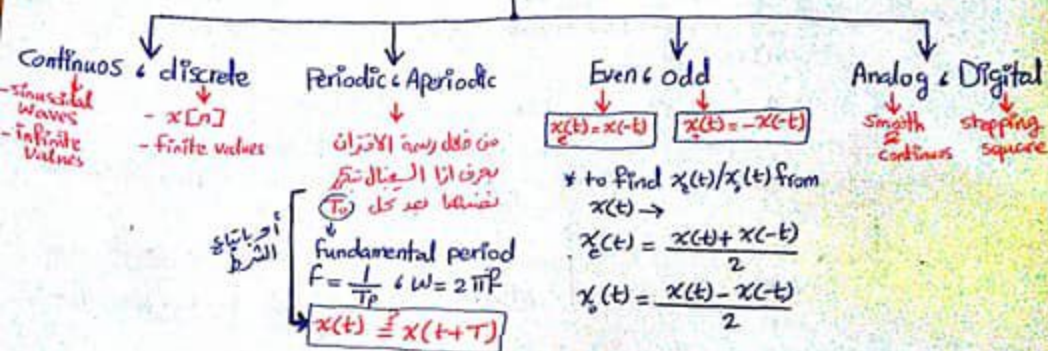 Continuos & discrete
- sinusoidal waves
- infinite values
- x[n]
- finite values
Periodic & Aperiodic
من خلال رسمة الاقتران
بعرف اذا السيجنال تكرر
نفسها بعد كل T₀
fundamental period
F = 1/Tp & ω = 2πf
أو باتباع
الشرط
x(t) ≟ x(t+T)
Even & odd
xₑ(t) = x(-t)
xₒ(t) = -x(-t)
* to find xₑ(t)/xₒ(t) from
x(t) →
xₑ(t) = x(t) + x(-t) / 2
xₒ(t) = x(t) - x(-t) / 2
Analog & Digital
smooth & continuos
stepping square